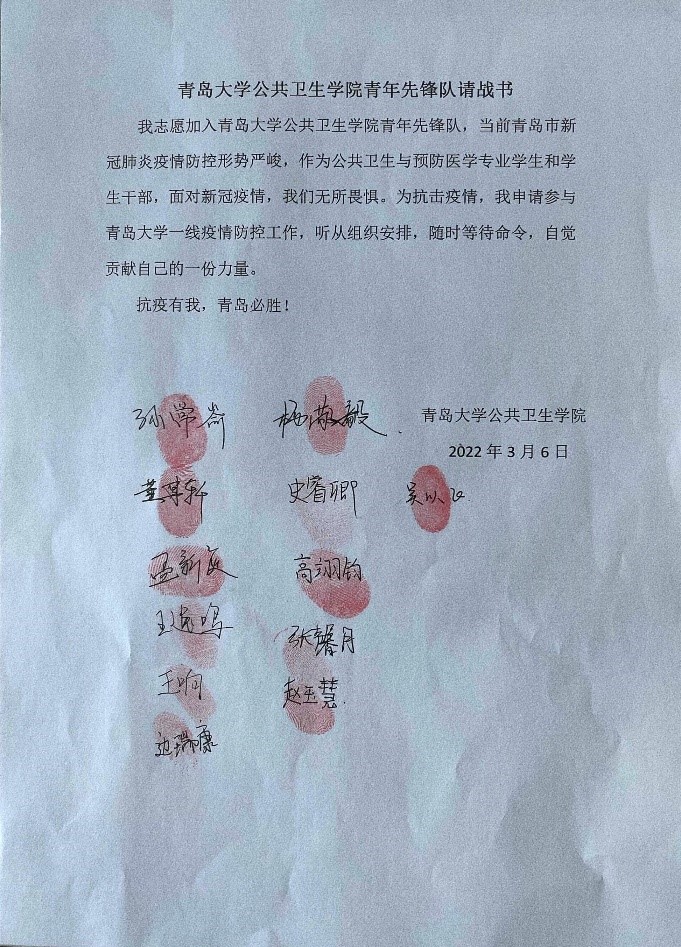 青岛大学公共卫生学院青年先锋队请战书
我志愿加入青岛大学公共卫生学院青年先锋队，当前青岛市新
冠肺炎疫情防控形势严峻，作为公共卫生与预防医学专业学生和学
生干部，面对新冠疫情，我们无所畏惧。为抗击疫情，我申请参与
青岛大学一线疫情防控工作，听从组织安排，随时等待命令，自觉
贡献自己的一份力量。
抗疫有我，青岛必胜！
青岛大学公共卫生学院
2022 年 3 月 6 日
杨敬毅
史睿卿
高翊钧
张馨月
王响
赵玉慧
边瑞康